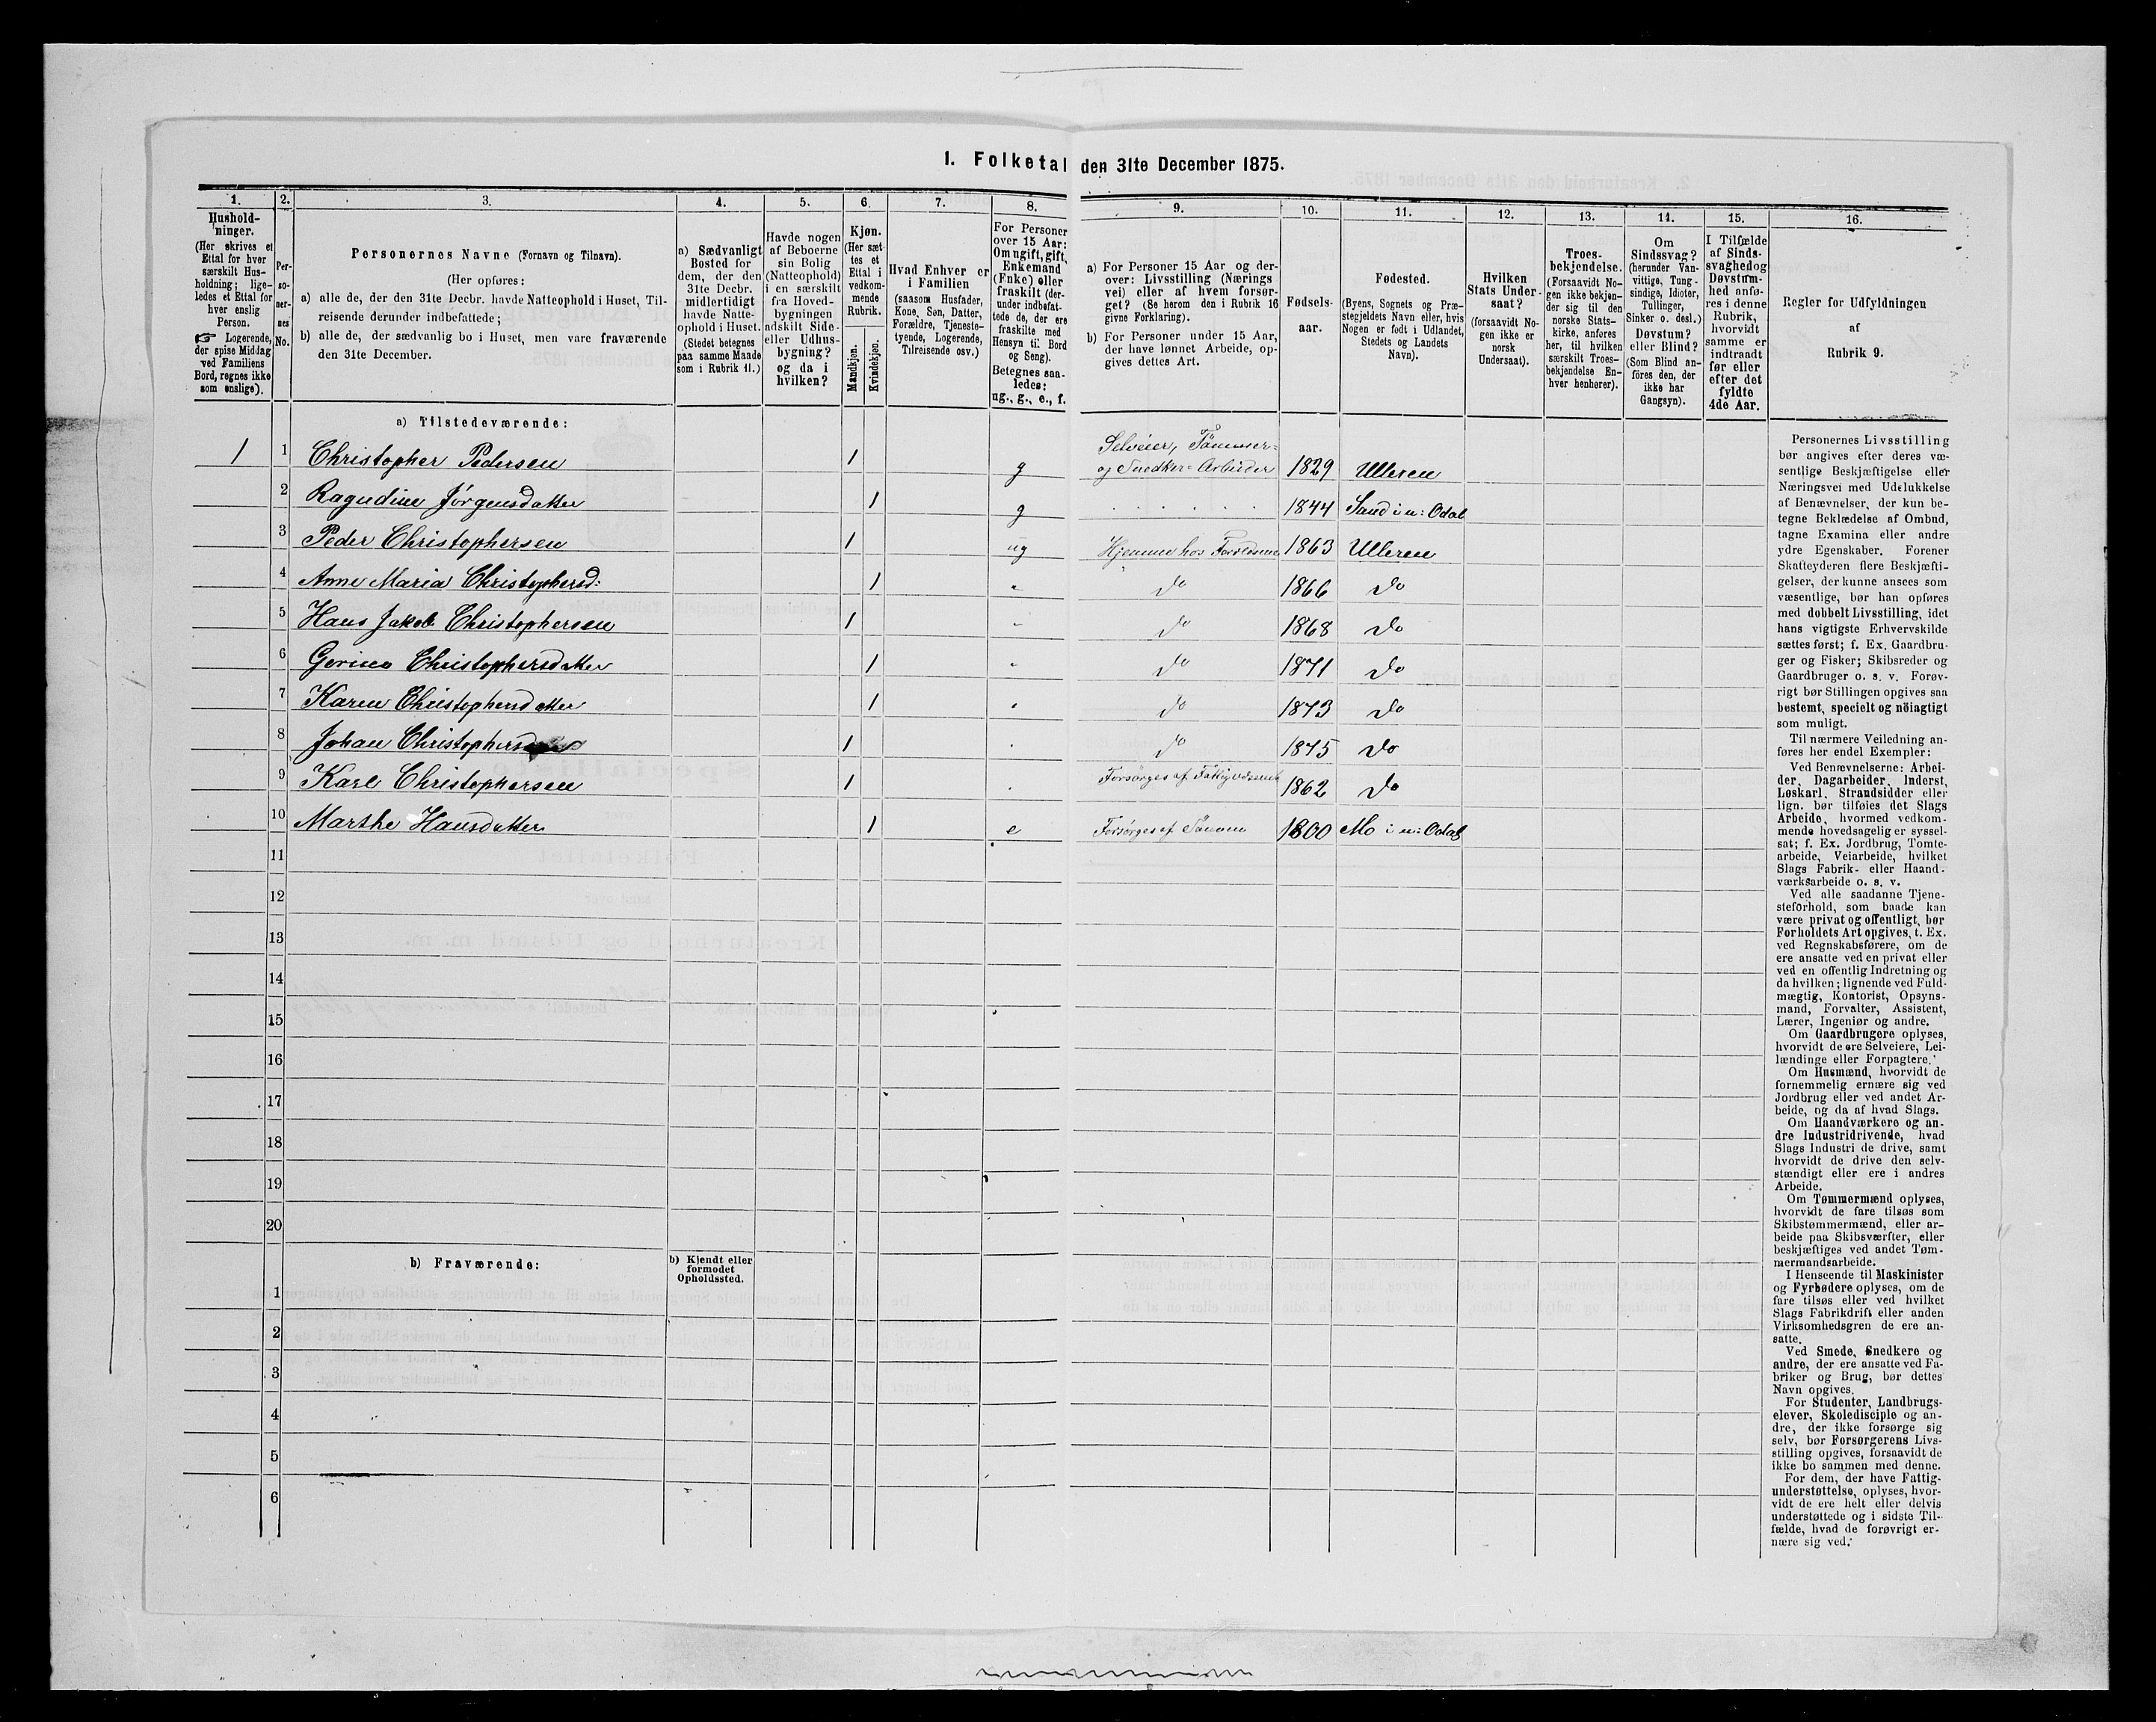 1. Folketal den 31te December 1875.
1.
Hushold-
ninger.
(Her skrives et
Ettal for hver
særskilt Hus-
holdning; lige-
ledes et Ettal for
hver enslig
Person.
☞ Logerende,
der spise Middag
ved Familiens
Bord, regnes ikke
som enslige).
2.
Per-
so-
ner-
nes
No.
3.
Personernes Navne (Fornavn og Tilnavn).
(Her opføres:
a) alle de, der den 31te Decbr. havde Natteophold i Huset, Til-
reisende derunder indbefattede;
b) alle de, der sædvanlig bo i Huset, men vare fraværende
den 31te December.
4.
a) Sædvanligt
Bosted for
dem, der den
31te Decbr.
midlertidigt
havde Natte-
ophold i Huset.
(Stedet betegnes
paa samme Maade
som i Rubrik 11.)
5.
Havde nogen
af Beboerne
sin Bolig
(Natteophold)
i en særskilt
fra Hoved-
bygningen
adskilt Side-
eller Udhus-
bygning?
og da i
hvilken?
6.
Kjøn.
(Her sæt-
tes et
Ettal i
vedkom-
mende
Rubrik.
Mandkjøn.
Kvindekjøn.
7.
Hvad Enhver er
i Familien
(saasom Husfader,
Kone, Søn, Datter,
Forældre, Tjeneste-
tyende, Logerende,
Tilreisende osv.)
8.
For Personer
over 15 Aar:
Om ugift, gift,
Enkemand
(Enke) eller
fraskilt (der-
under indbefat-
tede de, der ere
fraskilte med
Hensyn til Bord
og Seng).
Betegnes saa-
ledes:
ug., g., e., f.
9.
a) For Personer 15 Aar og der-
over: Livsstilling (Nærings
vei) eller af hvem forsør-
get? (Se herom den i Rubrik 16
givne Forklaring).
b) For Personer under 15 Aar,
der have lønnet Arbeide, op-
gives dettes Art.
10.
Fødsels-
aar.
11.
Fødested.
(Byens, Sognets og Præ-
stegjeldets Navn eller, hvis
Nogen er født i Udlandet,
Stedets og Landets
Navn).
12.
Hvilken
Stats Under-
saat?
(forsaavidt No-
gen ikke er
norsk
Undersaat).
13.
Troes-
bekjendelse.
(Forsaavidt No-
gen ikke bekjen-
der sig til den
norske Stats-
kirke, anføres
her, til hvilken
særskilt Troes-
bekjendelse En-
hver henhører).
14.
Om
Sindssvag?
(herunder Van-
vittige, Tung-
sindige, Idioter,
Tullinger,
Sinker o. desl.)
Døvstum?
eller Blind?
(Som Blind an-
føres den, der
ikke har
Gangsyn).
15.
I Tilfælde
af Sinds-
svaghed og
Døvstum-
hed anfø-
res i denne
Rubrik,
hvorvidt
samme er
indtraadt
før eller
efter det
fyldte
4de Aar.
16.
Regler for Udfyldningen
af
Rubrik 9.
a) Tilstedeværende:
1 1 Christopher Pedersen 1 g Selveier, Tømmer- og Snedker-Arbeider 1829 Ulleren
2 Ragndine Jørgensdatter 1 g 1844 Sand i n: Odal
3 Peder Christophersen 1 ug Hjemme hos Forældrene 1863 Ulleren
4 Anne Maria Christophersd: 1 " do 1866 do
5 Hans Jakob Christophersen 1 " do 1868 do
6 Gerina Christophersdatter 1 " do 1871 do
7 Karen Christophersdatter 1 " do 1873 do
8 Johan 1 do 1875 do
9 Karl Christophersen 1 Forsørges af Fattigvæsenet 1862 do
10 Marthe Hansdatter 1 e Forsørges af Sønnen 1800 Mo i n: Odal
11
12
13
14
15
16
17
18
19
20
b) Fraværende:
b) Kjendt eller
formodet
Opholdssted.
1
2
3
4
5
6
Personernes Livsstilling
bør angives efter deres væ-
sentlige Beskjæftigelse eller
Næringsvei med Udelukkelse
af Benævnelser, der kun be-
tegne Beklædelse af Ombud,
tagne Examina eller andre
ydre Egenskaber. Forener
Skatteyderen flere Beskjæfti-
gelser, der kunne ansees som
væsentlige, bør han opføres
med dobbelt Livsstilling, idet
hans vigtigste Erhvervskilde
sættes først; f. Ex. Gaardbru-
ger og Fisker; Skibsreder og
Gaardbruger o. s. v. Forøv-
rigt bør Stillingen opgives saa
bestemt, specielt og nöiagtigt
som muligt.
Til nærmere Veiledning an-
føres her endel Exempler:
Ved Benævnelserne: Arbei-
der, Dagarbeider, Inderst,
Løskarl, Strandsidder eller
lign. bør tilføies det Slags
Arbeide, hvormed vedkom-
mende hovedsagelig er syssel-
sat; f. Ex. Jordbrug, Tomte-
arbeide, Veiarbeide, hvilket
Slags Fabrik- eller Haand-
værksarbeide o. s. v.
Ved alle saadanne Tjene-
steforhold, som baade kan
være privat og offentligt, bør
Forholdets Art opgives, t. Ex.
ved Regnskabsførere, om de
ere ansatte ved en privat eller
ved en offentlig Indretning og
da hvilken; lignende ved Fuld-
mægtig, Kontorist, Opsyns-
mand, Forvalter, Assistent,
Lærer, Ingeniør og andre.
Om Gaardbrugere oplyses,
hvorvidt de ere Selveiere, Lei-
lændinge eller Forpagtere.
Om Husmænd, hvorvidt de
fornemmelig ernære sig ved
Jordbrug eller ved andet Ar-
beide, og da af hvad Slags.
Om Haandværkere og an-
dre Industridrivende, hvad
Slags Industri de drive, samt
hvorvidt de drive den selv-
stændigt eller ere i andres
Arbeide.
Om Tømmermænd oplyses,
hvorvidt de fare tilsøs som
Skibstømmermænd, eller ar-
beide paa Skibsværfter, eller
beskjæftiges ved andet Tøm-
mermandsarbeide.
I Henseende til Maskinister
og Fyrbødere oplyses, om de
fare tilsøs eller ved hvilket
Slags Fabrikdrift eller anden
Virksomhedsgren de ere an-
satte.
Ved Smede, Snedkere og
andre, der ere ansatte ved Fa-
briker og Brug, bør dettes
Navn opgives.
For Studenter, Landbrugs-
elever, Skoledisciple og an-
dre, der ikke forsørge sig
selv, bør Forsørgerens Livs-
stilling opgives, forsaavidt de
ikke bo sammen med denne.
For dem, der have Fattig-
understøttelse, oplyses, hvor-
vidt de ere helt eller delvis
understøttede og i sidste Til-
fælde, hvad de forøvrigt er-
nære sig ved.